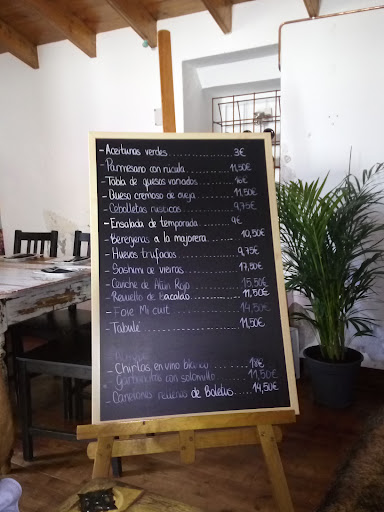 - Aceitunas verdes.............. 3€
- Parmesano con rúcula.............. 11,50€
- Tabla de quesos variados.... 16€
- Queso cremoso de oveja.......... 11,50€
- Cebolletas rústicas.............. 9,75€
- Ensalada de temporada.... 9€
- Berengenas a la majorera.......... 10,50€
- Huevos trufados............ 9,75€
- Sashimi de vieiras............ 17,50€
- Ceviche de Atún Rojo.......... 15,50€
- Revuelto de bacalao........ 11,50€
- Foie Mi cuit.............. 14,50€
Tabulé.............. 11,50€
- Chirlas, en vino blanco.......... 18€
- Garbancitos con solomillo...... 11,50€
- Canelones rellenos de Boletus.... 14,50€